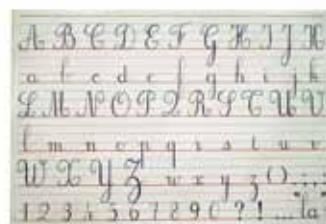 A B C D E F G H I J K
a b c d e f g h i j k
L M N O P Q R S T U V
l m n o p q r s t u v
W X Y Z w x y z ( ) . , : ;
1 2 3 4 5 6 7 8 9 0 ? !